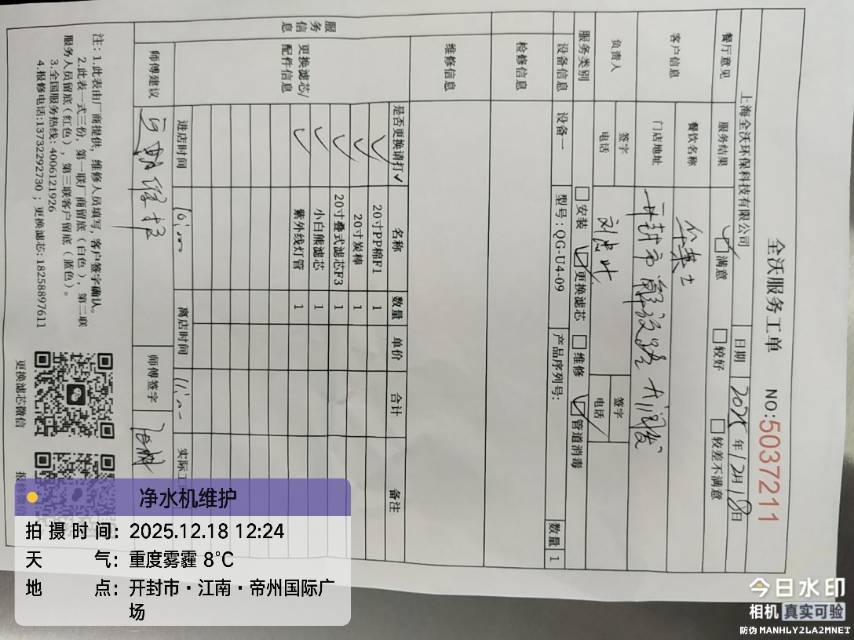 全沃服务工单
NO:5037211
上海全沃环保科技有限公司
日期 2025年12月18日
餐厅意见 服务结果 ☑满意 □较好 □较差不满意
客户信息 餐饮名称
门店地址 开封市 解放路 大润发
负责人 签字 签字
电话 电话
服务类别 □安装 ☑更换滤芯 □维修 ☑管道消毒
设备信息 设备一 型号:QG-U4-09 产品序列号: 数量 1
检修信息
维修信息
服务信息
更换滤芯/配件信息
是否更换请打✓ 名称 数量 单价 合计 备注
✓ 20寸PP棉F1 1
✓ 20寸炭棒 1
✓ 20寸叠式滤芯F3 1
✓ 小白熊滤芯 1
✓ 紫外线灯管 1
进店时间 10:00 离店时间 11:00
师傅建议 师傅签字
注:1.此表由厂商提供,维修人员填写,客户签字确认。
2.此表一式三份,第一联厂商留底(白色),第二联
服务人员留底(红色),第三联客户留底(蓝色)。
3.全国服务热线:4006121926
4.报修电话:13732292730;更换滤芯:18258897611
更换滤芯微信
净水机维护
拍摄时间:2025.12.18 12:24
天气:重度雾霾 8℃
地点:开封市·江南·帝州国际广
场
今日水印
相机 真实可验
防伪 MANHLY2LA2MNET